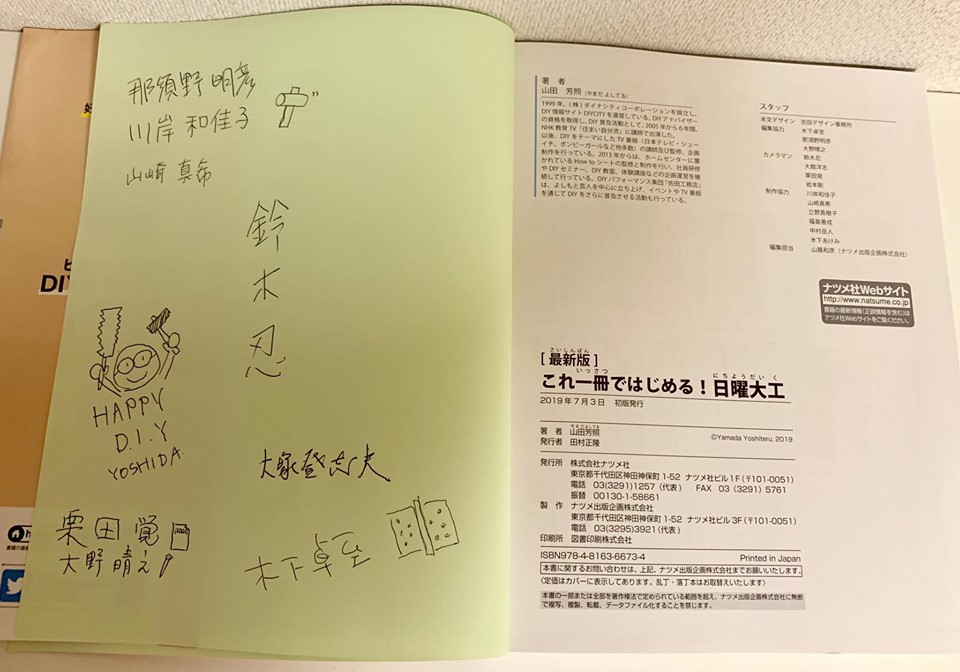 那須野 明彦
川岸 和佳子
山崎 真希
鈴木忍
HAPPY
D.I.Y
YOSHIDA
大塚登志夫
栗田 覚
大野晴え
木下卓至
DIY
著 者
山田 芳照（やまだ よしてる）
1999年、（株）ダイナシティコーポレーションを設立し、
DIY情報サイトDIYCITYを運営している。DIYアドバイザー
の資格を取得し、DIY普及活動として、2005年から6年間、
NHK教育TV「住まい自分流」に講師で出演した。
以後、DIYをテーマにしたTV番組（日本テレビ・シュー
イチ、ボンビーガールなど他多数）の講師及び監修、企画
制作を行っている。2013年からは、ホームセンターに置
かれているHow toシートの監修と制作を行い、社員研修
やDIYセミナー、DIY教室、体験講座などの企画運営を継
続して行っている。DIYパフォーマンス集団「佐田工務店」
は、よしもと芸人を中心に立ち上げ、イベントやTV番組
を通じてDIYをさらに普及させる活動も行っている。
スタッフ
本文デザイン 吉田デザイン事務所
編集協力 木下卓至
那須野明彦
大野晴之
カメラマン 鈴木忍
大館洋志
栗田覚
岩本剛
制作協力 川岸和佳子
山崎真希
立野真樹子
福島善成
中村岳人
木下あけみ
編集担当 山路和彦（ナツメ出版企画株式会社）
ナツメ社Webサイト
http://www.natsume.co.jp
書籍の最新情報（正誤情報を含む）は
ナツメ社Webサイトをご覧ください。
さいしんばん
[最新版]
いっさつ にちようだいく
これ一冊ではじめる！日曜大工
2019年7月3日 初版発行
やまだよしてる
著 者 山田芳照 ©Yamada Yoshiteru, 2019
発行者 田村正隆
発行所 株式会社ナツメ社
東京都千代田区神田神保町1-52 ナツメ社ビル1F（〒101-0051）
電話 03(3291)1257（代表） FAX 03(3291)5761
振替 00130-1-58661
製 作 ナツメ出版企画株式会社
東京都千代田区神田神保町1-52 ナツメ社ビル3F（〒101-0051）
電話 03(3295)3921（代表）
印刷所 図書印刷株式会社
ISBN978-4-8163-6673-4 Printed in Japan
本書に関するお問い合わせは、上記、ナツメ出版企画株式会社までお願いいたします。
〈定価はカバーに表示してあります。乱丁・落丁本はお取替えいたします〉
本書の一部または全部を著作権法で定められている範囲を超え、ナツメ出版企画株式会社に無断
で複写、複製、転載、データファイル化することを禁じます。